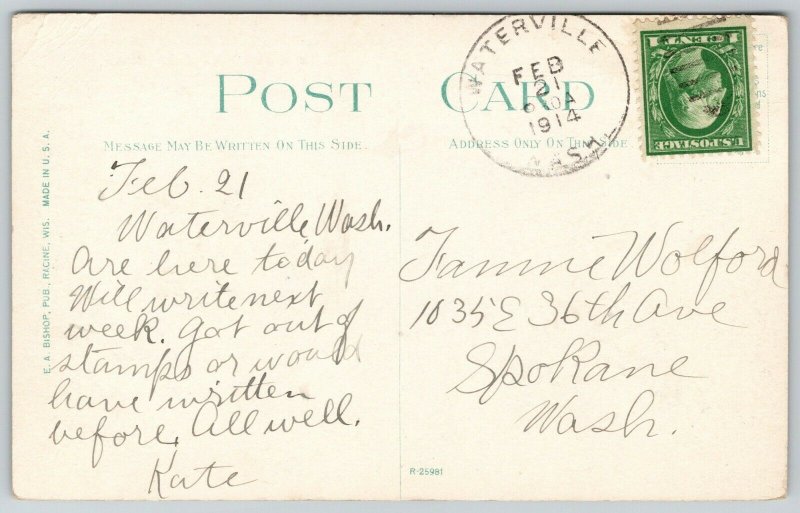 POST CARD
MESSAGE MAY BE WRITTEN ON THIS SIDE.
ADDRESS ONLY ON THIS SIDE
WATERVILLE
FEB
21
1914
WASH.
1 CENT 1
U.S. POSTAGE
E. A. BISHOP, PUB., RACINE, WIS. MADE IN U. S. A.
Feb. 21
Waterville Wash.
Are here today
Will write next
week. Got out of
stamps or would
have written
before. All well.
Kate
Fannie Wolford
1035 E 36th Ave
Spokane
Wash.
R-25981